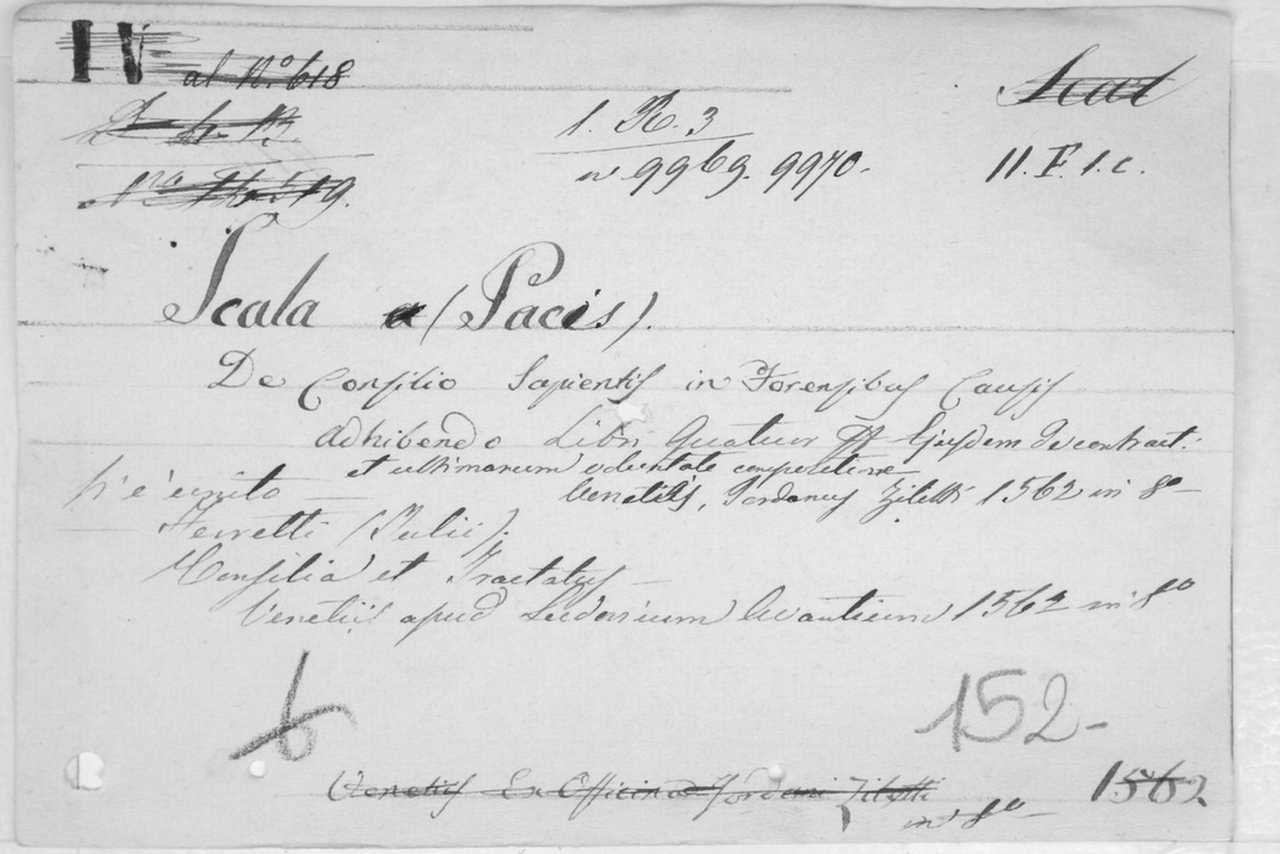 IV al N.º 618
Scal
1. K. 3
n 9969. 9970.
11. F. 1. c.
Scala a (Pacis).
De Consilio Sapientis in Forensibus Causis
adhibendo Libri Quatuor Ejusdem de contract:
et ultimarum voluntate compositione
s'è unito — Venetiis, Jordanus Ziletti 1562 in 8º —
Ferretti (Julii).
Consilia et Tractatus —
Venetiis apud Ludovicum Avantium 1562 in 8º
6
152-
Venetiis Ex Officina Jordani Ziletti 1562
in 8º —